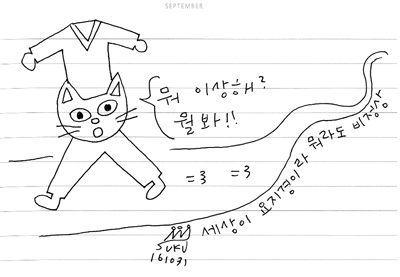 SEPTEMBER
뭐 이상해?
뭘 봐!!
세상이 요지경이라 뭐라도 비정상
SUKU
161031